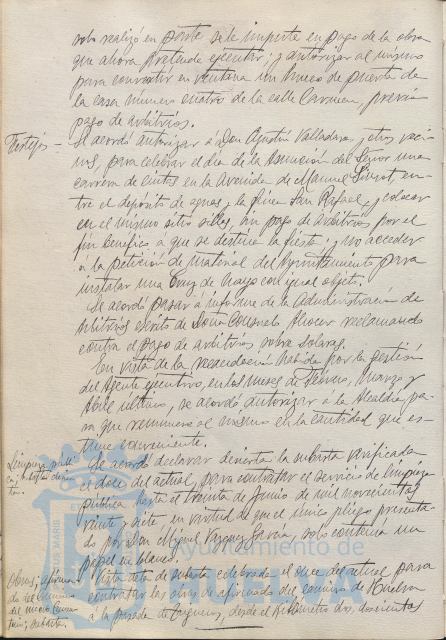 solo realizó en parte se le impute en pago de la obra
que ahora pretende ejecutar; y autorizar al mismo
para convertir en ventana un hueco de puerta de
la casa número cuatro de la calle Carmen, previo
pago de arbitrios.
Festejos — Se acordó autorizar á Don Agustín Valladares y otros veci-
nos, para celebrar el día de la Ascensión del Señor una
carrera de cintas en la Avenida de Manuel Siurot en-
tre el depósito de aguas y la finca San Rafael, y colocar
en el mismo sitio sillas, sin pago de arbitrios por el
fin benéfico á que se destina la fiesta; y no acceder
á la petición de material del Ayuntamiento para
instalar una Cruz de Mayo con igual objeto.
Se acordó pasar á informe de la Administración de
Arbitrios escrito de Doña Consuelo reclamando
contra el pago de arbitrios sobre solares.
En vista de la recaudación habida por la gestión
del Agente ejecutivo, en los meses de Febrero, Marzo y
Abril último, se acordó autorizar á la Alcaldía pa-
ra que remunere al mismo en la cantidad que es-
time conveniente.
Limpieza públi-
ca; subasta desier-
ta.
Se acordó declarar desierta la subasta verificada
el doce del actual, para contratar el servicio de limpieza
pública hasta el treinta de Junio de mil novecientos
veinte y siete, en virtud de que el único pliego presenta-
do por Don Miguel Vazquez García, solo contenía un
papel en blanco.
Obras; afirma-
do del camino
del nuevo Cemen-
terio; subasta.
Vista acta de subasta celebrada el once del actual para
contratar las obras de afirmado del camino de Huelva
á la desde el kilómetro dos, doscientos
Ayuntamiento de